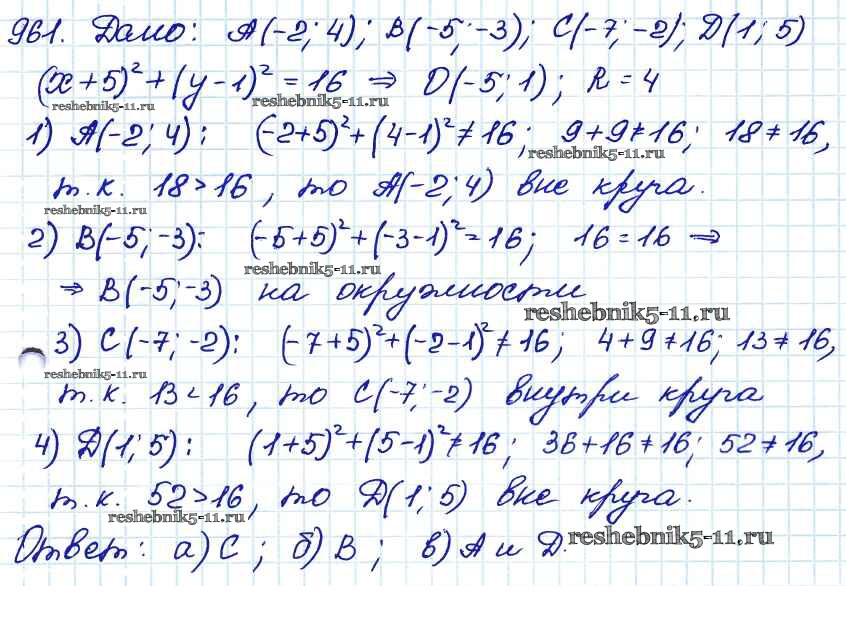 961. Дано: A(-2; 4); B(-5; -3); C(-7; -2); D(1; 5)
(x+5)² + (y-1)² = 16 ⇒ O(-5; 1); R = 4
reshebnik5-11.ru reshebnik5-11.ru
1) A(-2; 4): (-2+5)² + (4-1)² ≠ 16; 9+9≠16; 18≠16,
reshebnik5-11.ru
т.к. 18>16, то A(-2; 4) вне круга.
reshebnik5-11.ru
2) B(-5; -3): (-5+5)² + (-3-1)² = 16; 16=16 ⇒
reshebnik5-11.ru
⇒ B(-5; -3) на окружности
reshebnik5-11.ru
3) C(-7; -2): (-7+5)² + (-2-1)² ≠ 16; 4+9≠16; 13≠16,
reshebnik5-11.ru
т.к. 13<16, то C(-7; -2) внутри круга
4) D(1; 5): (1+5)² + (5-1)² ≠ 16; 36+16≠16; 52≠16,
т.к. 52>16, то D(1; 5) вне круга.
reshebnik5-11.ru
Ответ: а) C; б) B; в) A и D.
reshebnik5-11.ru